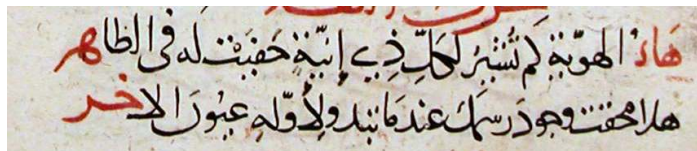 هاءُ الهويةِ كم تُشيرُ لكلِّ ذِي إنيّةٍ خفيَت له في الظاهر
هلا محقت وجودَ رسمك عندما تبدو لأوّلهِ عيونَ الاخر